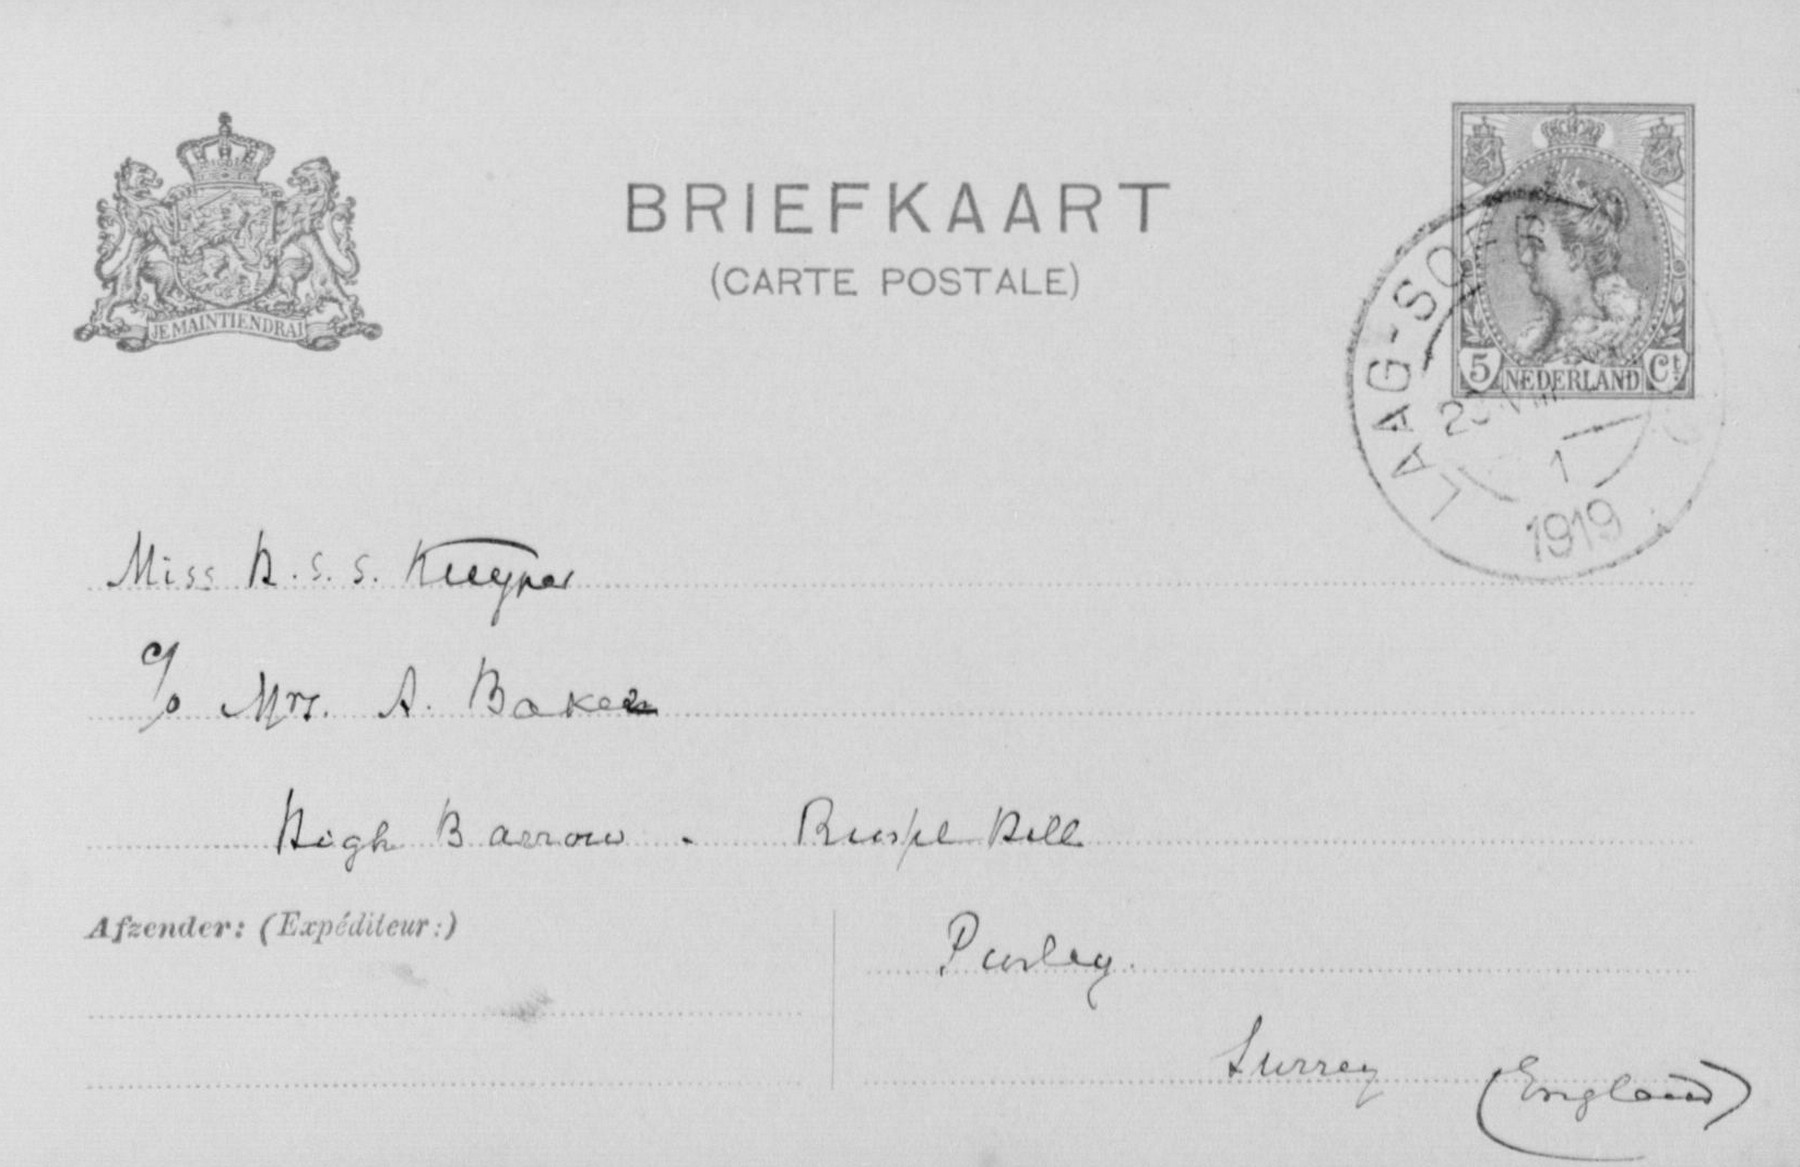 BRIEFKAART
(CARTE POSTALE)
JE MAINTIENDRAI
5 NEDERLAND Ct
LAAG-SO
VIII
1
1919
Miss H. S. S. Kuyper
c/o Mrs. A. Baker
High Barrow - Hill
Afzender: (Expéditeur:)
Purley.
Surrey (England)